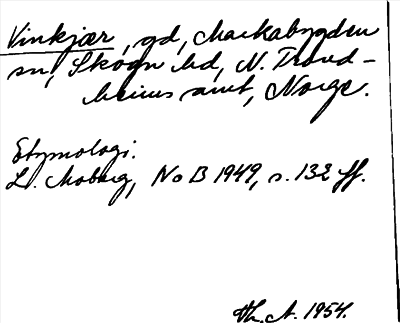 Vinkjær, gd, Markabygden
sn, Skogn hd, N. Trond-
heims amt, Norge.
Etymologi.
L. Moberg, NoB 1949, s. 132 ff.
Th. A. 1954.